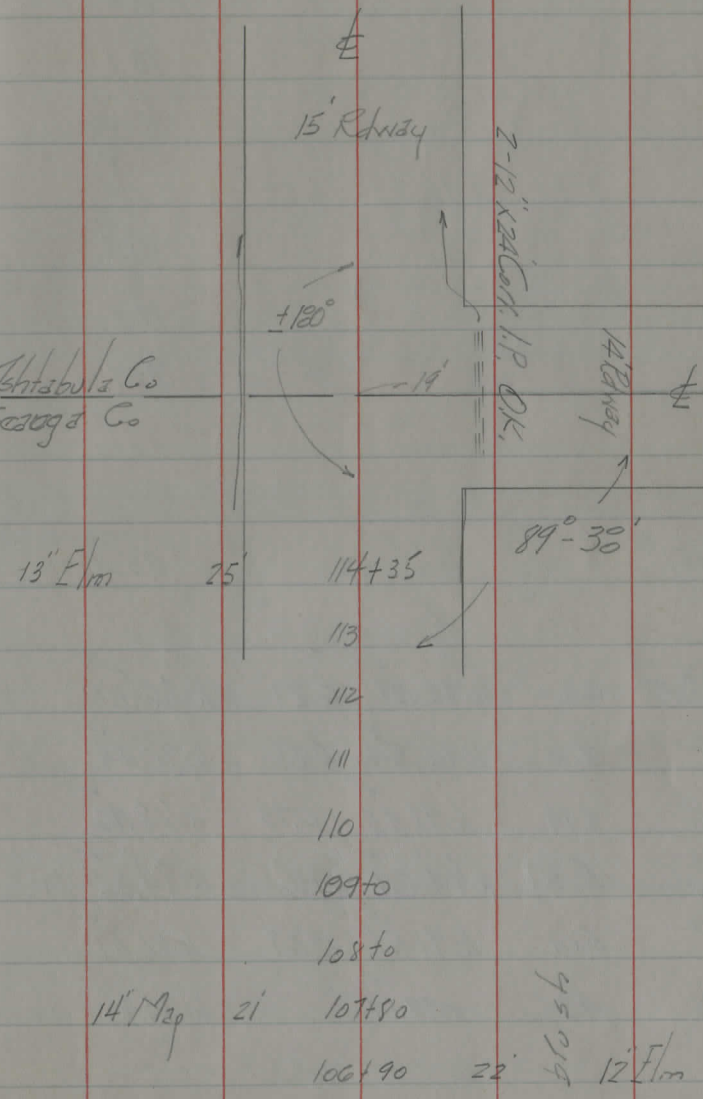 ℄
15' Rdway
2-12"x24' Corr. I.P. OK.
±180°
14' Rdway
Ashtabula Co
19'
℄
Geauga Co
89°-30'
13" Elm 25' 114+35
113
112
111
110
109+0
108+0
14" Map 21' 107+80
Brush
106+90 22' 12" Elm